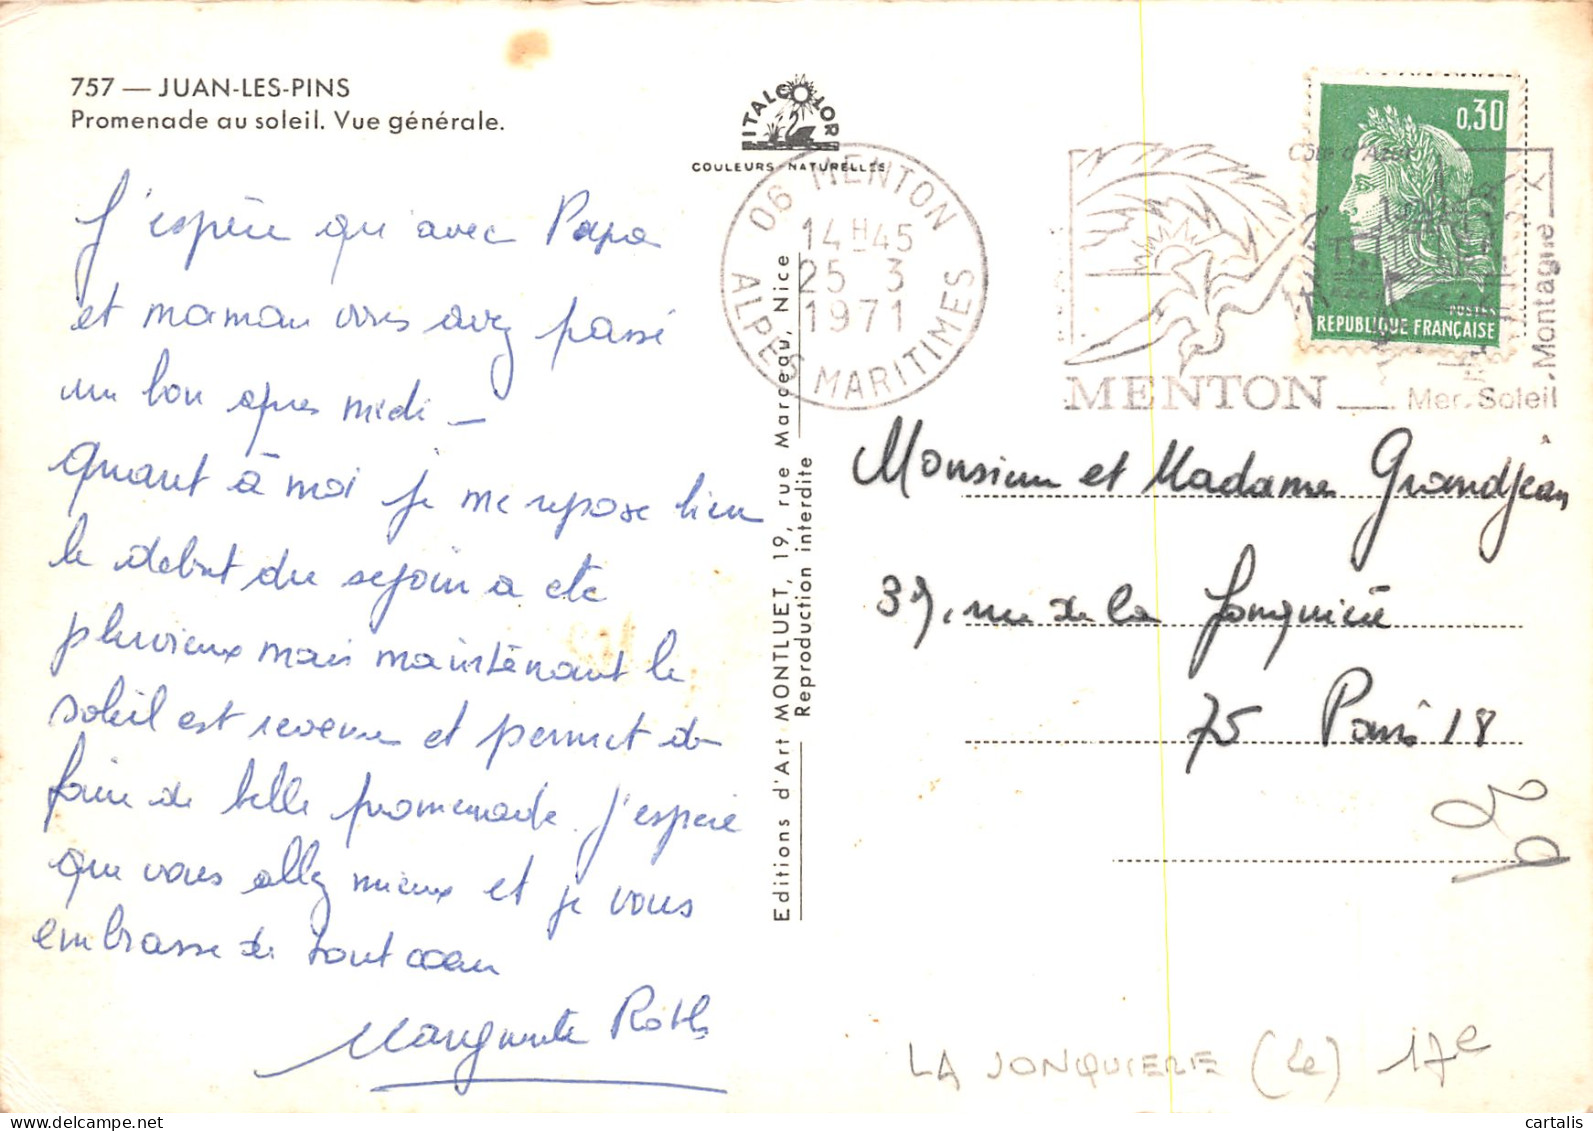 757 — JUAN-LES-PINS
Promenade au soleil. Vue générale.
ITALCOLOR
COULEURS-NATURELLES
J'espère qu'avec Papa
et maman vous avez passé
un bon apres midi –
quant à moi je me repose bien
le debut du sejour a ete
pluvieux mais maintenant le
soleil est revenu et permet de
faire de belle promenade. J'espère
que vous allez mieux et je vous
embrasse de tout coeur
Marguerite
Editions d'Art MONTLUET, 19, rue Marceau, Nice
Reproduction interdite
06 MENTON
14H45
25 3
1971
ALPES MARITIMES
Côte d'Azur
MENTON
Mer. Soleil. Montagne
0,30
POSTES
REPUBLIQUE FRANÇAISE
Monsieur et Madame Grandjean
39, rue de la Jonquière
75 Paris 18
LA JONQUIERE (Le) 17e
cartalis